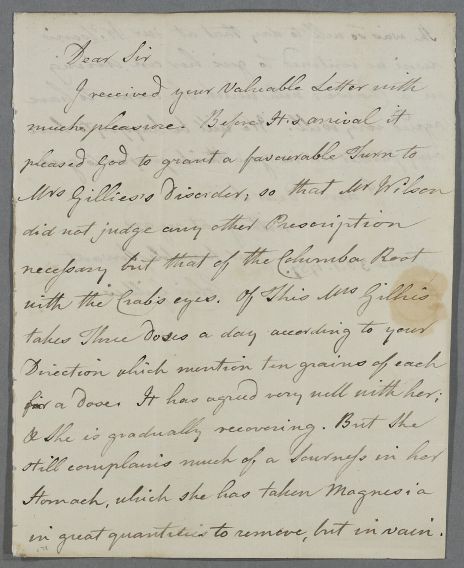 Dear Sir
I received your Valuable Letter with
much pleasure. Before It's arrival it
pleased God to grant a favourable Turn to
Mrs Gillies's Disorder; so that Mr Wilson
did not judge any other Prescription
necessary but that of the Columba Root
with the Crab's eyes. Of This Mrs Gillies
takes Three Doses a day according to your
Direction which mention ten grains of each
for a Dose. It has agreed very well with her;
& she is gradually recovering. But she
still complains much of a Sourness in her
Stomach, which she has taken Magnesia
in great quantities to remove, but in vain.